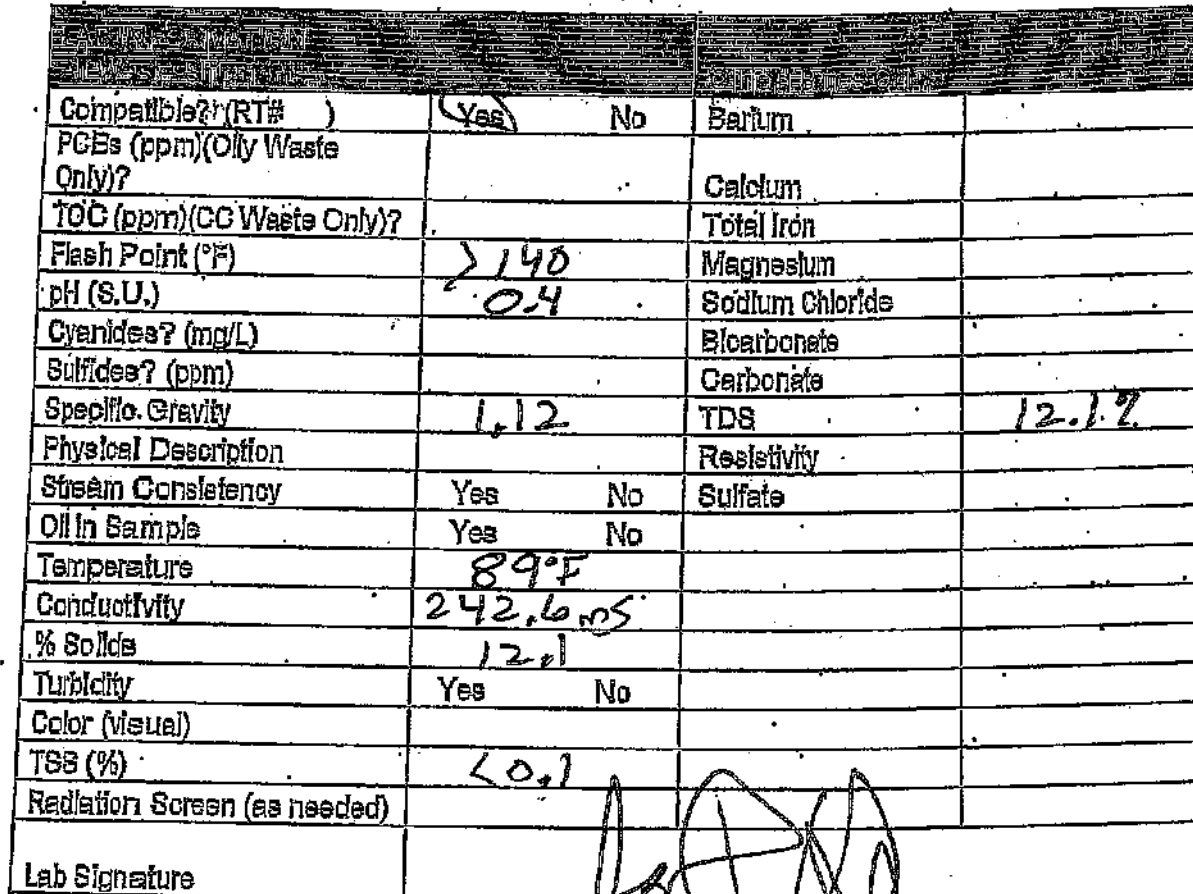 Compatible? (RT# ) Yes No Barium
PCBs (ppm)(Oily Waste
Only)? Calcium
TOC (ppm)(CC Waste Only)? Total Iron
Flash Point (°F) >140 Magnesium
pH (S.U.) 0.4 Sodium Chloride
Cyanides? (mg/L) Bicarbonate
Sulfides? (ppm) Carbonate
Specific Gravity 1.12 TDS 12.1%
Physical Description Resistivity
Stream Consistency Yes No Sulfate
Oil in Sample Yes No
Temperature 89°F
Conductivity 242.6 mS
% Solids 12.1
Turbidity Yes No
Color (visual)
TSS (%) <0.1
Radiation Screen (as needed)
Lab Signature